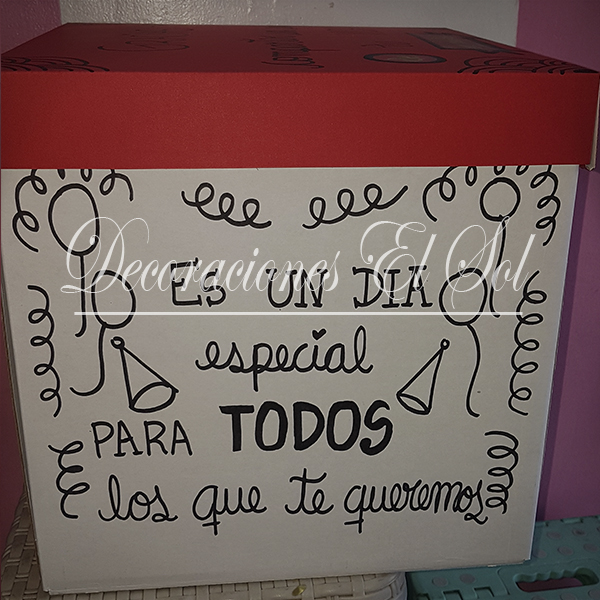 Decoraciones El Sol
ES UN DIA
especial
PARA TODOS
los que te queremos